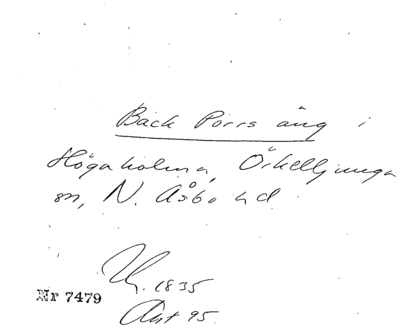 Back Pörrs äng i
Högaholma, Örkelljunga
sn, N. Åsbo hd
U. 1835
Nr 7479
Avst 95